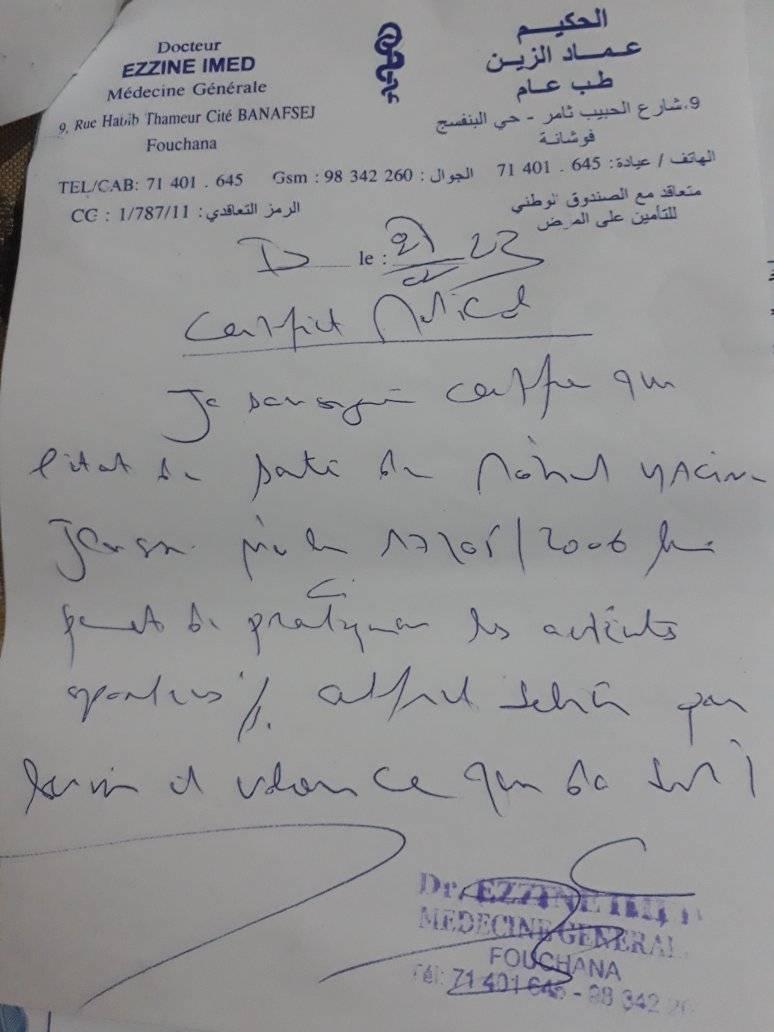 Docteur
EZZINE IMED
Médecine Générale
9, Rue Habib Thameur Cité BANAFSEJ
Fouchana
TEL/CAB: 71 401 . 645 Gsm : 98 342 260 : الجوال
CC : 1/787/11 : الرمز التعاقدي
الحكيم
عماد الزين
طب عام
9،شارع الحبيب ثامر - حي البنفسج
فوشانة
الهاتف / عيادة: 645 . 401 71
متعاقد مع الصندوق الوطني
للتأمين على المرض
le : 23
Certificat Médical
Je soussigné certifie que
l'état de santé de Mohamed Yacine
né le 17/05/2006 lui
permet de pratiquer les activités
sportives
et valoir ce que de droit
Dr. EZZINE IMED
MEDECINE GENERAL
FOUCHANA
Tél: 71 401 645 - 98 342